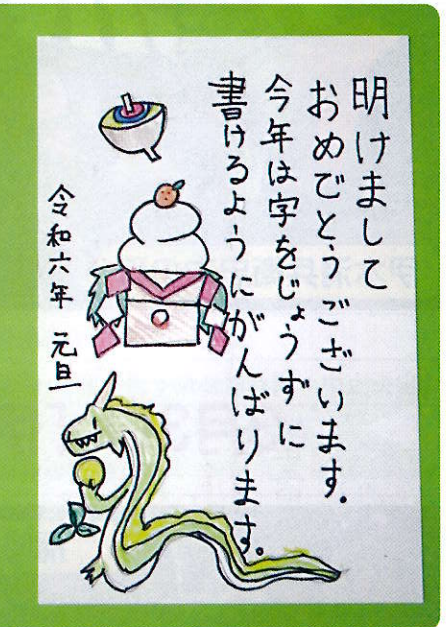 明けまして
おめでとうございます。
今年は字をじょうずに
書けるようにがんばります。
令和六年 元旦